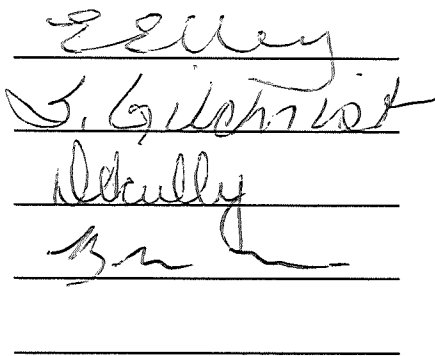 E Elley
S. Gilchrist
D Scully